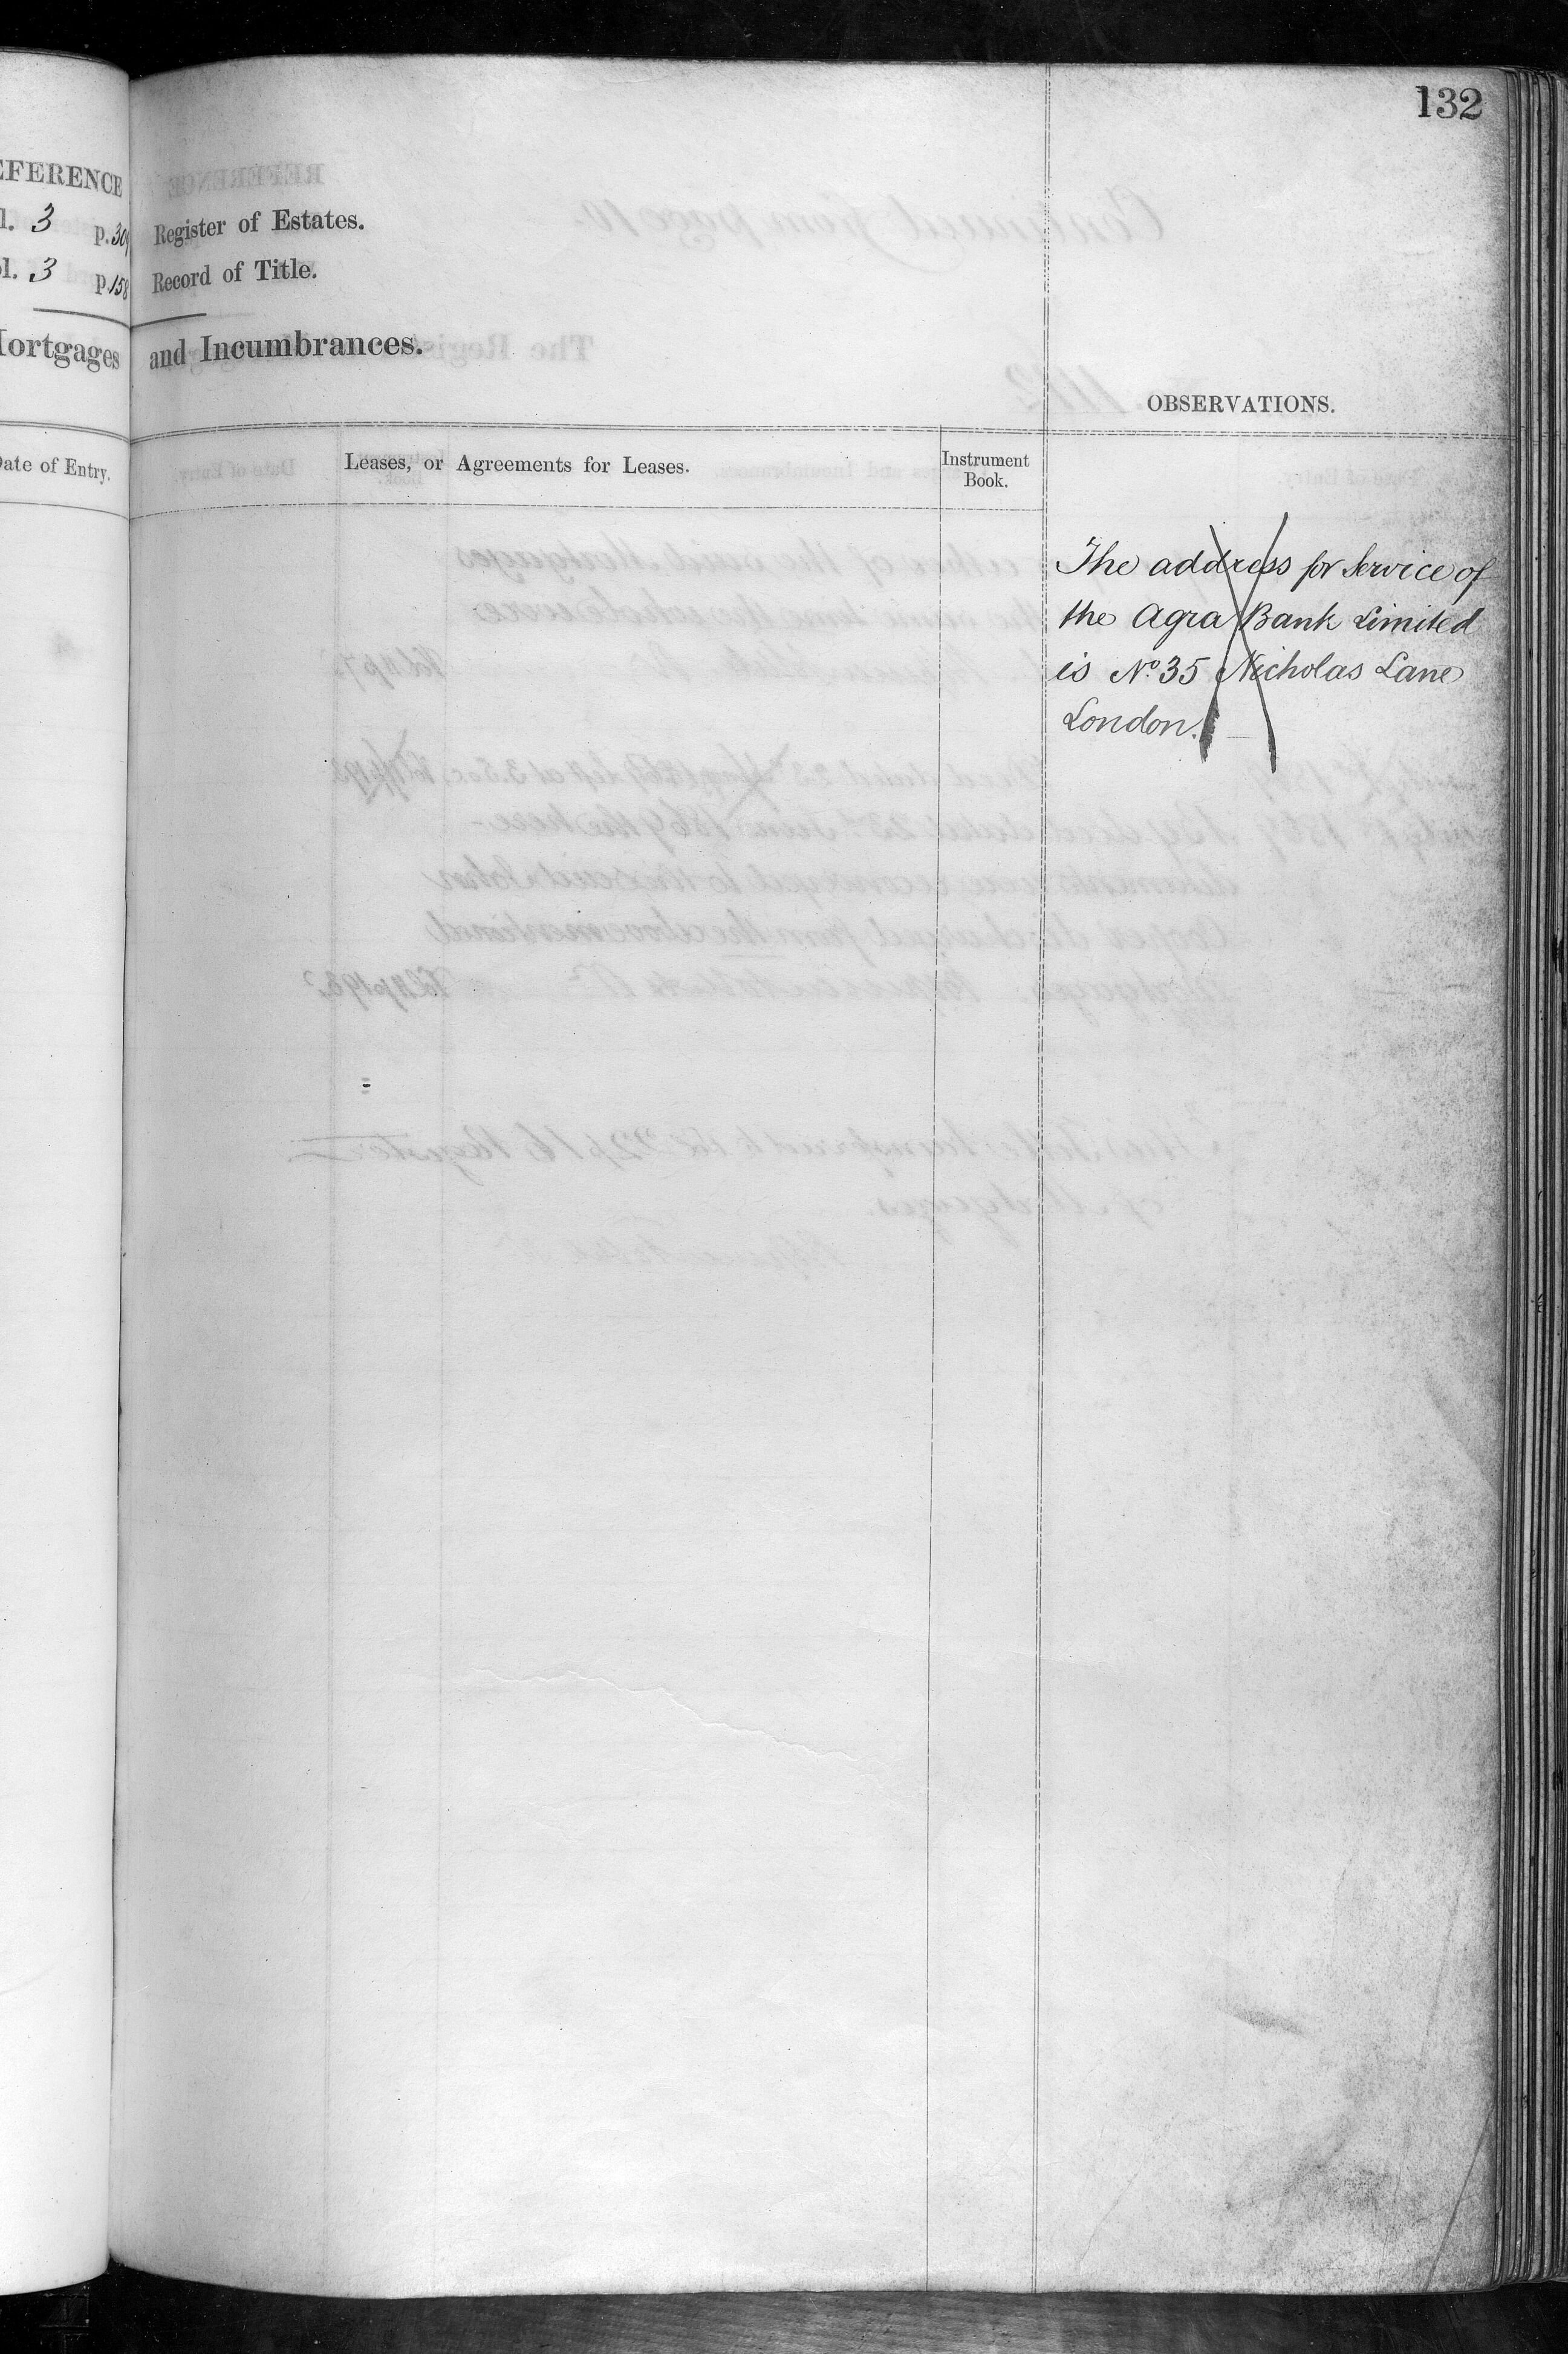 132
EFERENCE
l. 3 p.309 Register of Estates.
ol. 3 p.158 Record of Title.
Mortgages and Incumbrances.
OBSERVATIONS.
Date of Entry. Leases, or Agreements for Leases. Instrument Book.
The address for Service of
the Agra Bank Limited
is No. 35 Nicholas Lane
London.